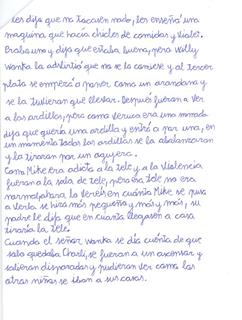 les dijo que no tocasen nada, les enseñó una
maquina que hacía chicles de comidas y Violet
probó uno y dijo que estaba bueno, pero Willy
Wonka la advirtió que no se lo comiese y al tercer
plato se emperó a poner como un arandano y
se la tuvieron que llevar. Después fueron a ver
a las ardillas, pero como Veruca era una mimada
dijo que quería una ardilla y entró a por una, en
un momento todas las ardillas se la abalanzaron
y la tiraron por un agujero.
Como Mike era adicto a la tele y a la violencia
fueron a la sala de tele, pero esa tele no era
normal, ahora lo vereis en cuánto Mike se puso
a verla se hizo más pequeño y más y más, su
padre le dijo que en cuanto llegasen a casa
tiraría la tele.
Cuando el señor Wonka se dío cuénta de que
solo quedaba Charli, se fueron a un ascensor y
salieron disparados y pudieron ver como los
otros niños se iban a sus casas.